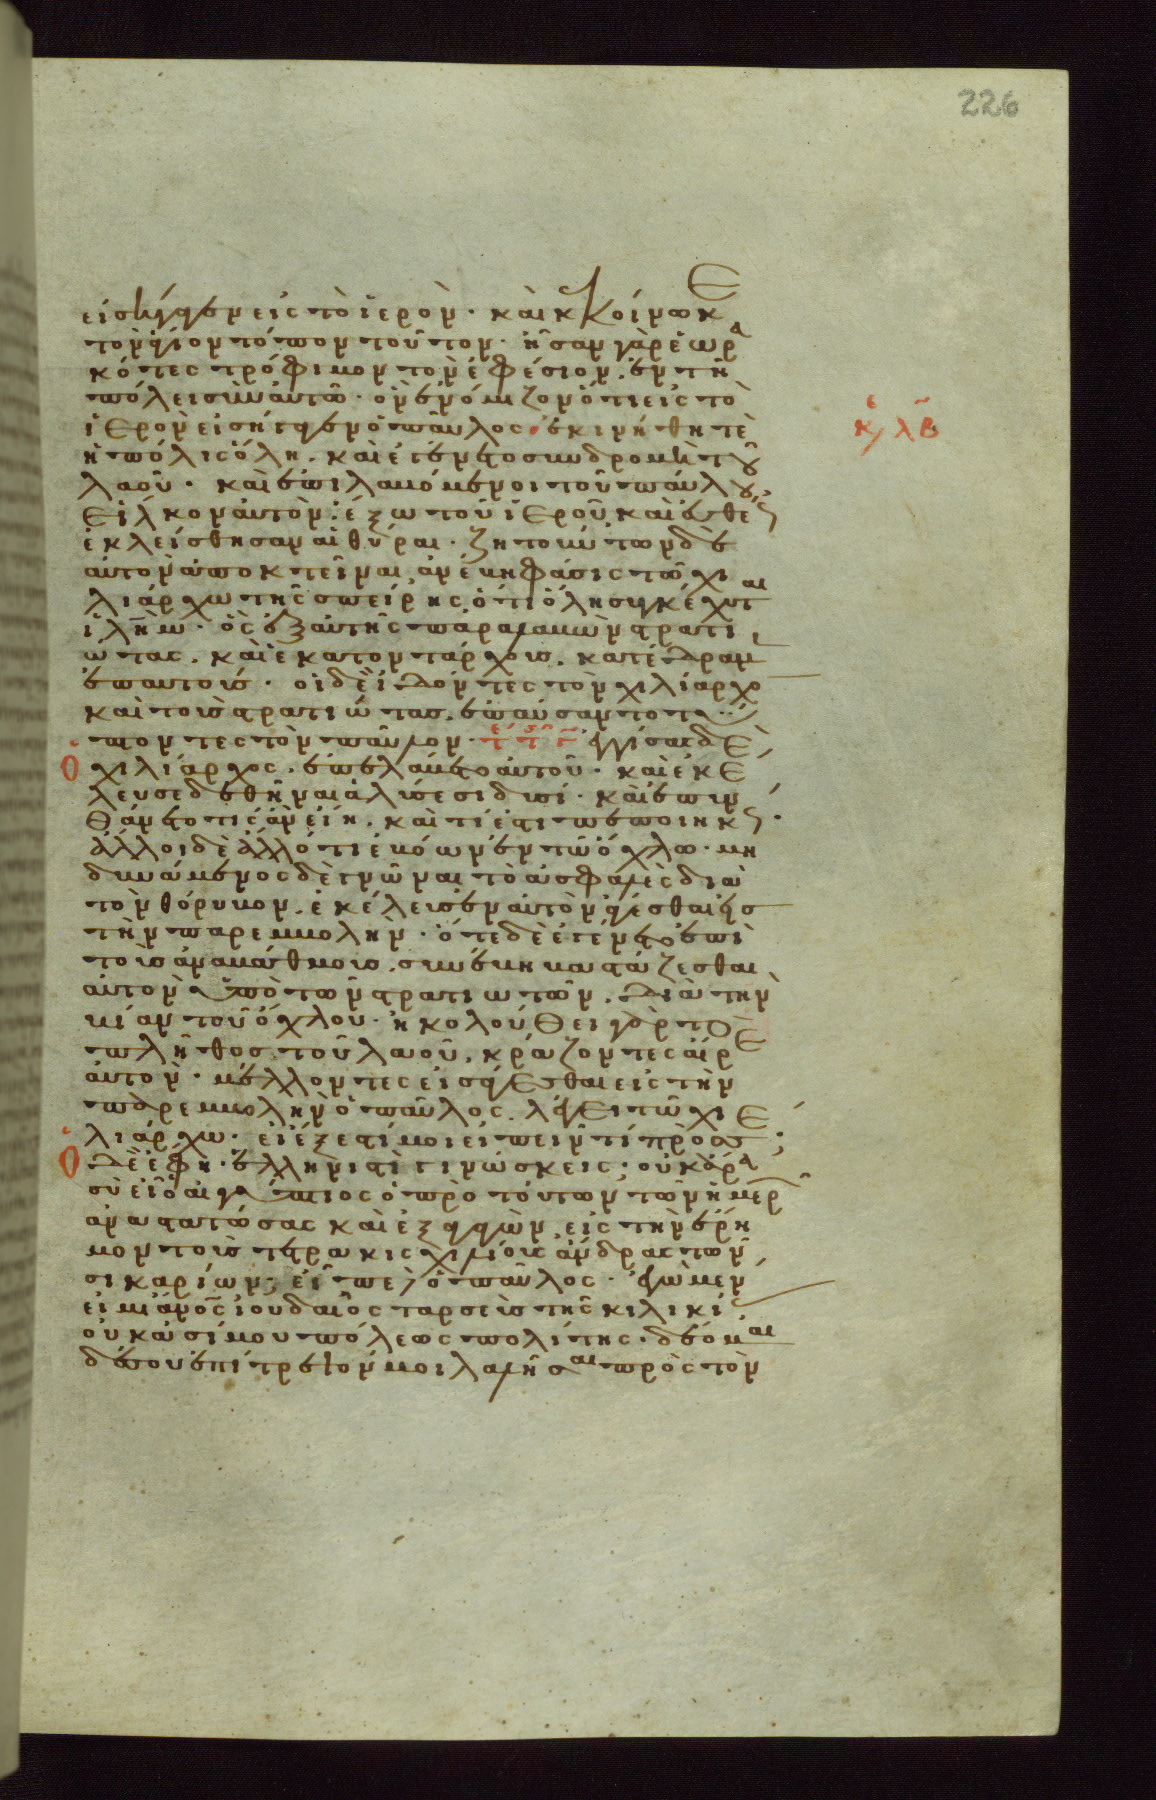 226
εἰσήγαγεν εἰς τὸ ἱερόν · καὶ κεκοίνωκε
τὸν ἅγιον τόπον τοῦτον · ἦσαν γὰρ ἑωρα
κότες τρόφιμον τὸν ἐφέσιον ἐν τῆ
πόλει σὺν αὐτῶ · ὃν ἐνόμιζον ὅτι εἰς τὸ
ἱερὸν εἰσήγαγεν ὁ παῦλος · ἐκινήθη τὲ
ἡ πόλις ὅλη · καὶ ἐγένετο συνδρομὴ τοῦ
λαοῦ · καὶ ἐπιλαβόμενοι τοῦ παύλου,
εἷλκον αὐτὸν ἔξω τοῦ ἱεροῦ καὶ εὐθέως
ἐκλείσθησαν αἱ θύραι · ζητούντων δὲ
αὐτὸν ἀποκτεῖναι, ἀνέβη φάσις τῶ χι
λιάρχω τῆς σπείρης, ὅτι ὅλη συγκέχυται
ἱλῆμ · ὃς ἐξαυτῆς παραλαβὼν στρατι
ώτας · καὶ ἑκατοντάρχους · κατέδραμεν
ἐπ αὐτούς · οἱ δὲ ἰδόντες τὸν χιλίαρχον
καὶ τοὺς στρατιώτας, ἐπαύσαντο τύ
πτοντες τὸν παῦλον · ἐγγίσας δὲ
ὁ χιλίαρχος · ἐπελάβετο αὐτοῦ · καὶ ἐκέ
λευσε δεθῆναι ἁλύσεσι δυσί · καὶ ἐπυν
θάνετο τίς ἂν εἴη · καὶ τί ἐστι πεποιηκώς ·
κλβ
ἄλλοι δὲ ἄλλό τι ἐβόων ἐν τῶ ὄχλω · μὴ
δυνάμενος δὲ γνῶναι τὸ ἀσφαλὲς διὰ
τὸν θόρυβον · ἐκέλευσεν αὐτὸν ἄγεσθαι εἰς
τὴν παρεμβολήν · ὅτε δὲ ἐγένετο ἐπὶ
τοὺς ἀναβαθμούς · συνέβη βαστάζεσθαι
αὐτὸν ὑπὸ τῶν στρατιωτῶν · διὰ τὴν
βίαν τοῦ ὄχλου · ἠκολούθει γὰρ τὸ
πλῆθος τοῦ λαοῦ, κράζοντες αἶρε
αὐτὸν · μέλλοντες εἰσάγεσθαι εἰς τὴν
παρεμβολὴν ὁ παῦλος · λέγει τῶ χι
λιάρχω · εἰ ἔξεστί μοι εἰπεῖν τί πρός σέ ;
ὁ δὲ ἔφη · ἑλληνιστὶ γινώσκεις · οὐκ ἄρα
σὺ εἶ ὁ αἰγύπτιος ὁ πρὸ τούτων τῶν ἡμερῶν
ἀναστατώσας καὶ ἐξαγαγὼν εἰς τὴν ἔρη
μον τοὺς τετρακισχιλίους ἄνδρας τῶν
σικαρίων ; εἶπε δὲ ὁ παῦλος · ἐγὼ μὲν
εἰμὶ ἄνος ἰουδαῖος ταρσεὺς τῆς κιλικίας
οὐκ ἀσήμου πόλεως πολίτης · δέομαι
δέ σου ἐπίτρεψόν μοι λαλῆσαι πρὸς τὸν